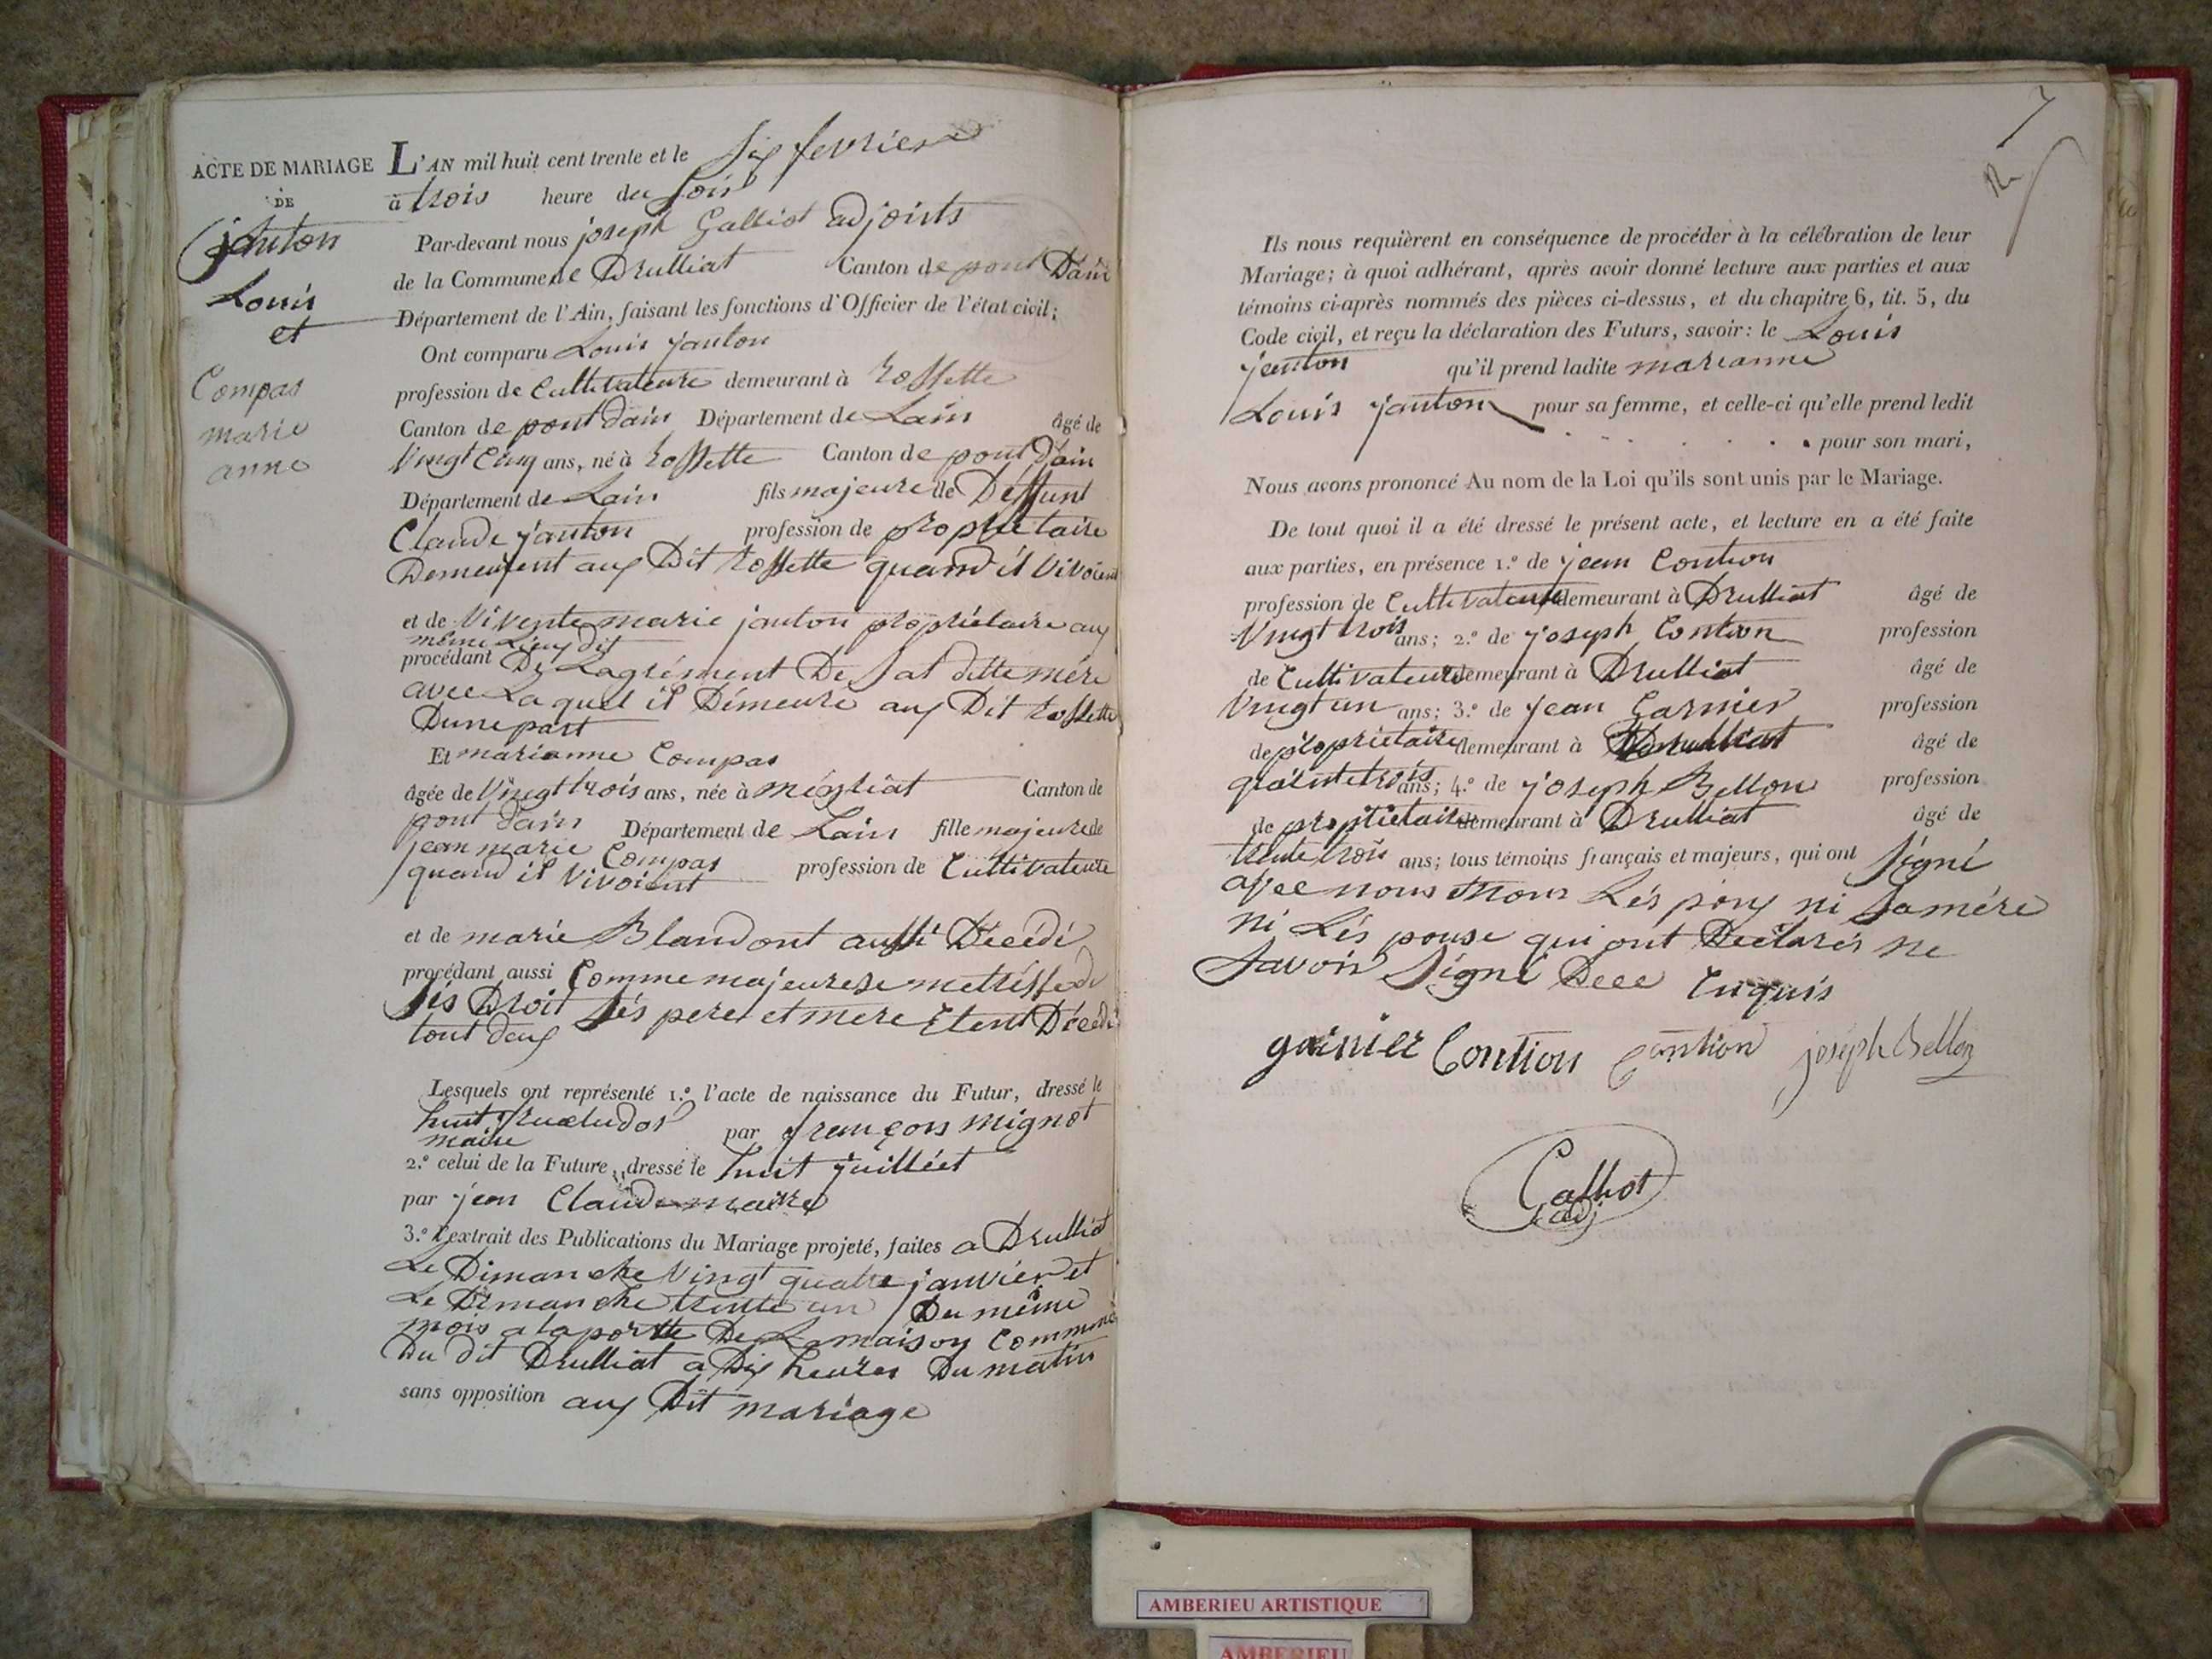 ACTE DE MARIAGE
DE
janton
Louis
et
Compas
marie
anne
L'AN mil huit cent trente et le Six fevrier
à trois heure du Soir
Par-devant nous joseph Galliot adjoints
de la Commune de Drulliat Canton de pont Dain
Département de l'Ain, faisant les fonctions d'Officier de l'état civil;
Ont comparu Louis janton
profession de Cultivateure demeurant à rossette
Canton de pont dain Département de Lain âgé de
Vingt Cinq ans, né à rossette Canton de pont Dain
Département de Lain fils majeure de Deffunt
Claude janton profession de propriétaire
Demeurent aux Dit rossette quand il Vivoient
et de Vivente marie janton propriétaire aux
même Lieux dit
procédant De Lagrément De Sat ditte mére
avec Laquel il Démeure aux Dit rossette
Dune part
Et marianne Compas
âgée de Vingt trois ans, née à mégliat Canton de
pont dain Département de Lain fille majeure de
jean marie Compas profession de Cultivateure
quand il Vivoient
et de marie Blandont aussi Décédé
procédant aussi Comme majeure et metrésse de
Sés Droit Sés pere et mere Etent Décédé
tout deux
Lesquels ont représenté 1.º l'acte de naissance du Futur, dressé le
huit par françois mignot
maire
2.º celui de la Future, dressé le huit juilléet
par jean Claude maire
3.º l'extrait des Publications du Mariage projeté, faites a Drulliat
Le Dimanche Vingt quatre janvier et
Le Dimanche trente un Du même
mois a la portte De La maison Commune
Du dit Drulliat a Dix heures Du matin
sans opposition aux Dit mariage
7
Ils nous requièrent en conséquence de procéder à la célébration de leur
Mariage; à quoi adhérant, après avoir donné lecture aux parties et aux
témoins ci-après nommés des pièces ci-dessus, et du chapitre 6, tit. 5, du
Code civil, et reçu la déclaration des Futurs, savoir: le Louis
janton qu'il prend ladite marianne
Louis janton pour sa femme, et celle-ci qu'elle prend ledit
pour son mari,
Nous avons prononcé Au nom de la Loi qu'ils sont unis par le Mariage.
De tout quoi il a été dressé le présent acte, et lecture en a été faite
aux parties, en présence 1.º de jean Contion
profession de Cultivateure demeurant à Drulliat âgé de
Vingt trois ans; 2.º de joseph Contion profession
de Cultivateure demeurant à Drulliat âgé de
Vingt un ans; 3.º de jean Garnier profession
de propriétaire demeurant à Drulliat âgé de
ans; 4.º de joseph Bellon profession
de propriétaire demeurant à Drulliat âgé de
trente trois ans; tous témoins français et majeurs, qui ont Signé
avec nous Lés poux ni Samére
ni Lés pouse qui ont Déclarés ne
Savoir Signé Enquis
garnier Contion Contion joseph Bellon
Galliot
adj
AMBERIEU ARTISTIQUE
AMBERIEU